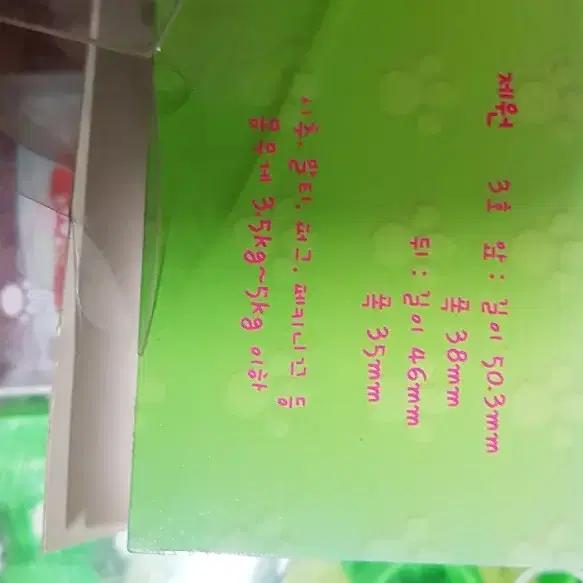 제원 3호 앞 : 길이 50.3mm
폭 38mm
뒤 : 길이 46mm
폭 35mm
시츄, 말티, 퍼그, 페키니즈 등
몸무게 3.5kg~5kg 이하